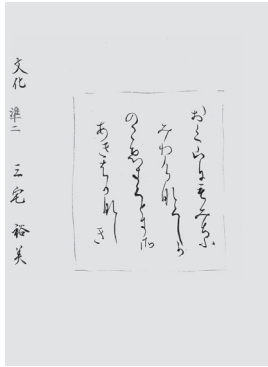 おく山にもみち
ふみわけ那くしか
のこゑきくときそ
あきはか那しき
文化 準二 三宅 裕美